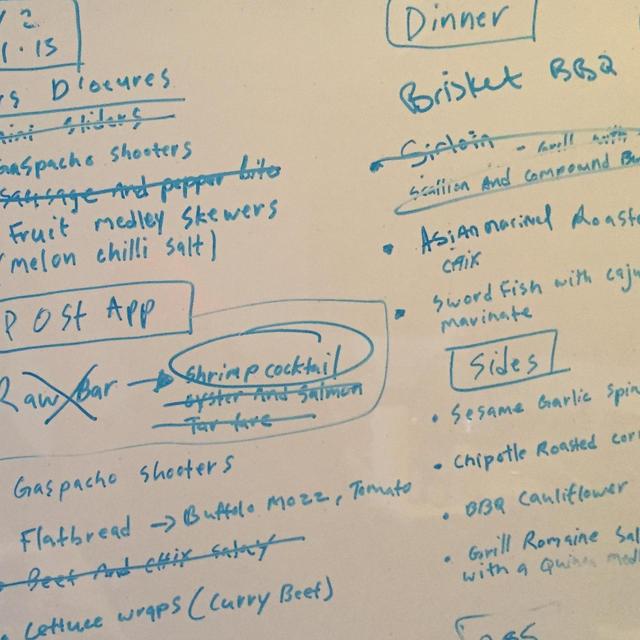 1.15
Diocures
mini sliders
Gaspacho shooters
Sausage And pepper bite
Fruit medley skewers
(melon chilli salt)
POST APP
Raw Bar → shrimp cocktail
oyster And Salmon
Tar tare
Gaspacho shooters
Flatbread → Buffolo mozz, Tomato
Beef And chix satay
Lettuce wraps (Curry Beef)
Dinner
Brisket BBQ
Sirloin - Grill with
Scallion And Compound
Asian marinai Roaste
chix
Sword Fish with caju
marinate
Sides
Sesame Garlic Spin
Chipotle Roasted cor
BBQ Cauliflower
Grill Romaine Sal
with a Quinoa